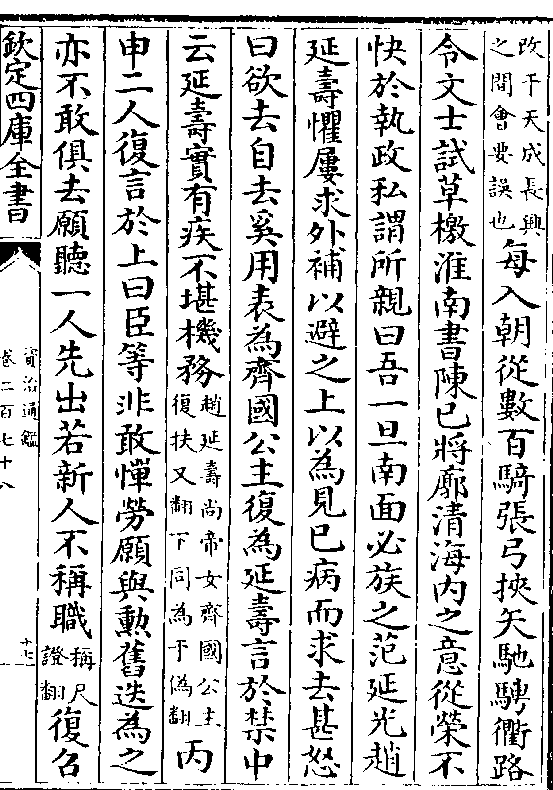 改于天成長興
之間會要誤也
每入朝從數百騎張弓挾矢馳騁衢路
令文士試草檄淮南書陳已將廓清海内之意從榮不
快於執政私謂所親曰吾一旦南面必族之范延光趙
延壽懼屢求外補以避之上以為見已病而求去甚怒
曰欲去自去奚用表為齊國公主復為延壽言於禁中
云延壽實有疾不堪機務
趙延壽尚帝女齊國公主
復扶又翻下同為于偽翻
丙
申二人復言於上曰臣等非敢憚勞願與勳舊迭為之
亦不敢俱去願聽一人先出若新人不稱職
稱尺
證翻
復召
欽定四庫全書
資治通鑑
卷二百七十八
十七